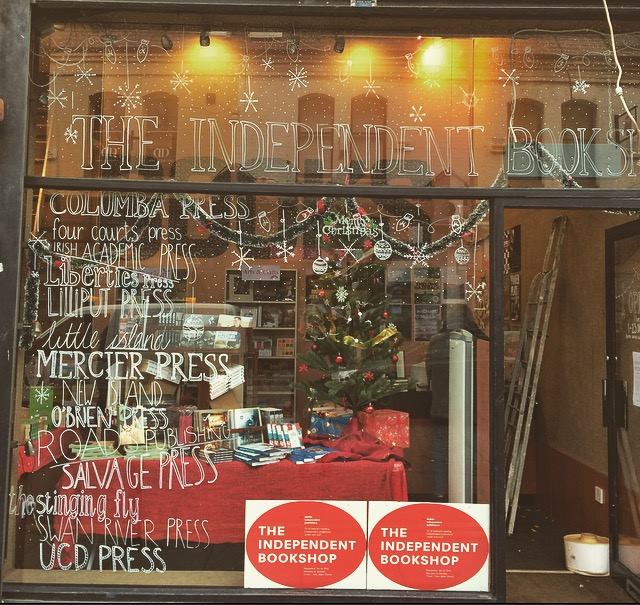 THE INDEPENDENT BOOKS
COLUMBA PRESS
four courts press
IRISH ACADEMIC PRESS
Liberties Press
LILLIPUT PRESS
little island
MERCIER PRESS
NEW ISLAND
O'BRIEN PRESS
ROADS PUBLISHING
SALVAGE PRESS
the stinging fly
SWAN RIVER PRESS
UCD PRESS
Merry
Christmas
THE
INDEPENDENT
BOOKSHOP
THE
INDEPENDENT
BOOKSHOP